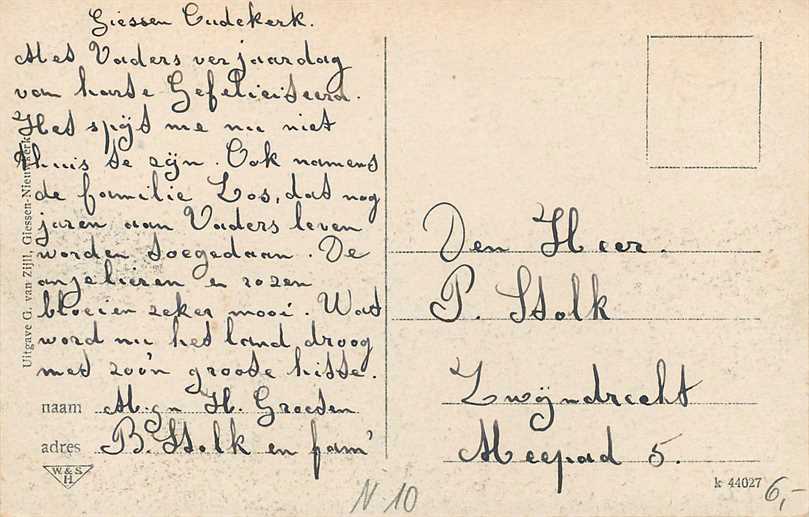 Giessen Oudekerk.
Met Vaders verjaardag
van harte Gefeliciteerd.
Het spijt me nu niet
thuis te zijn. Ook namens
de familie Los, dat nog
jaren aan Vaders leven
worden toegedaan. De
anjelieren en rozen
bloeien zeker mooi. Wat
word nu het land droog
met zoo'n groote hitte.
naam M.gn H. Groeten
adres B. Stolk en fam'
W.&S.
H.
Uitgave G. van Zijll, Giessen-Nieuwkerk
Den Heer.
P. Stolk
Zwijndrecht
Meepad 5.
k 44027
N 10
6,-